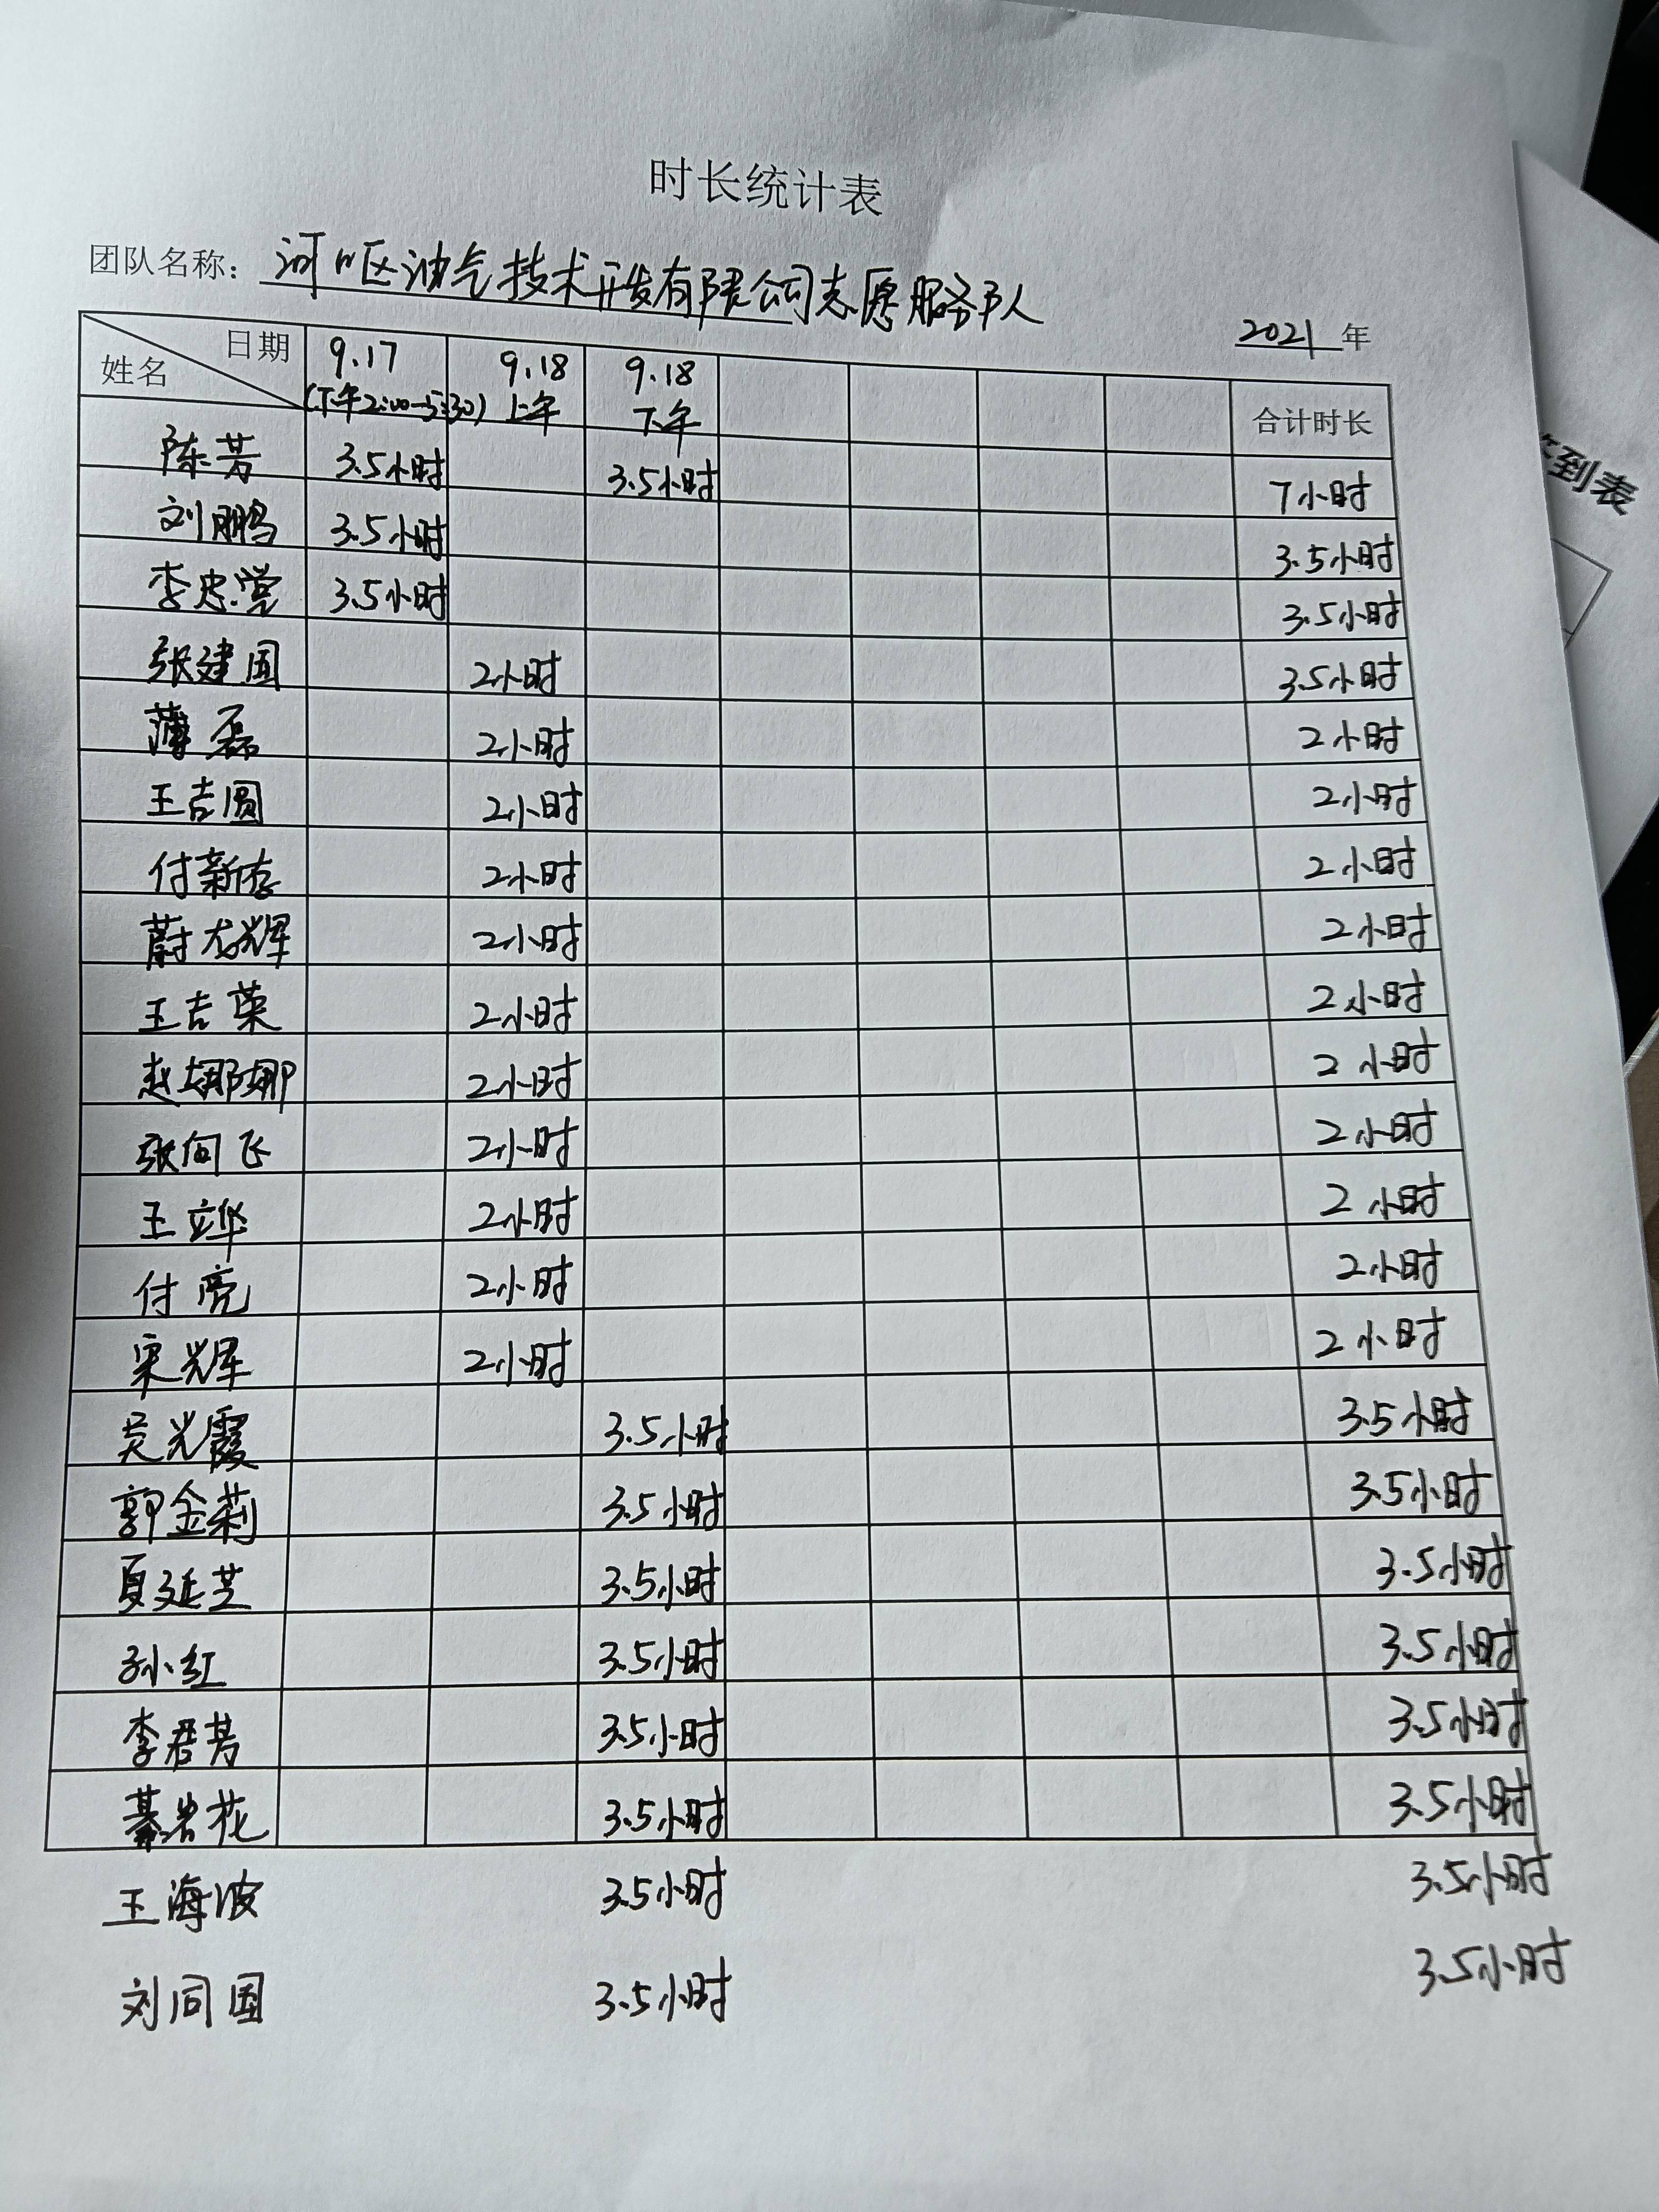 时长统计表
团队名称: 河口区油气技术开发有限公司志愿服务队
2021年
日期 姓名 9.17 (下午2:00-5:30) 9.18 上午 9.18 下午 合计时长
陈芳 3.5小时 3.5小时 7小时
刘鹏 3.5小时 3.5小时
李忠堂 3.5小时 3.5小时
张建国 2小时 3.5小时
薄磊 2小时 2小时
王吉圆 2小时 2小时
付新春 2小时 2小时
蔚龙辉 2小时 2小时
王吉荣 2小时 2小时
赵娜娜 2小时 2小时
张向飞 2小时 2小时
王立华 2小时 2小时
付亮 2小时 2小时
宋光军 2小时 2小时
吴光霞 3.5小时 3.5小时
郭金莉 3.5小时 3.5小时
夏延芝 3.5小时 3.5小时
孙小红 3.5小时 3.5小时
李君芳 3.5小时 3.5小时
綦岩花 3.5小时 3.5小时
王海波 3.5小时 3.5小时
刘同国 3.5小时 3.5小时
到表